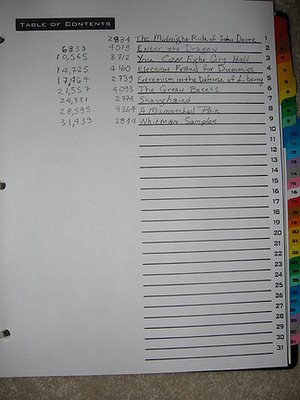 TABLE OF CONTENTS
2834 The Midnight Ride of John Deere 1
6853 4019 Enter the Dragon 2
10,565 3712 You CAN Fight City Hall 3
14,725 4160 Election Fraud for Dummies 4
17,464 2739 Extremism in the Defense of Liberty 5
21,557 4093 The Green Berets 6
24,331 2774 Shanghaied 7
28,595 4264 A Mismatched Pair 8
31,439 2844 Whitman Sampler 9
10
11
12
13
14
15
16
17
18
19
20
21
22
23
24
25
26
27
28
29
30
31